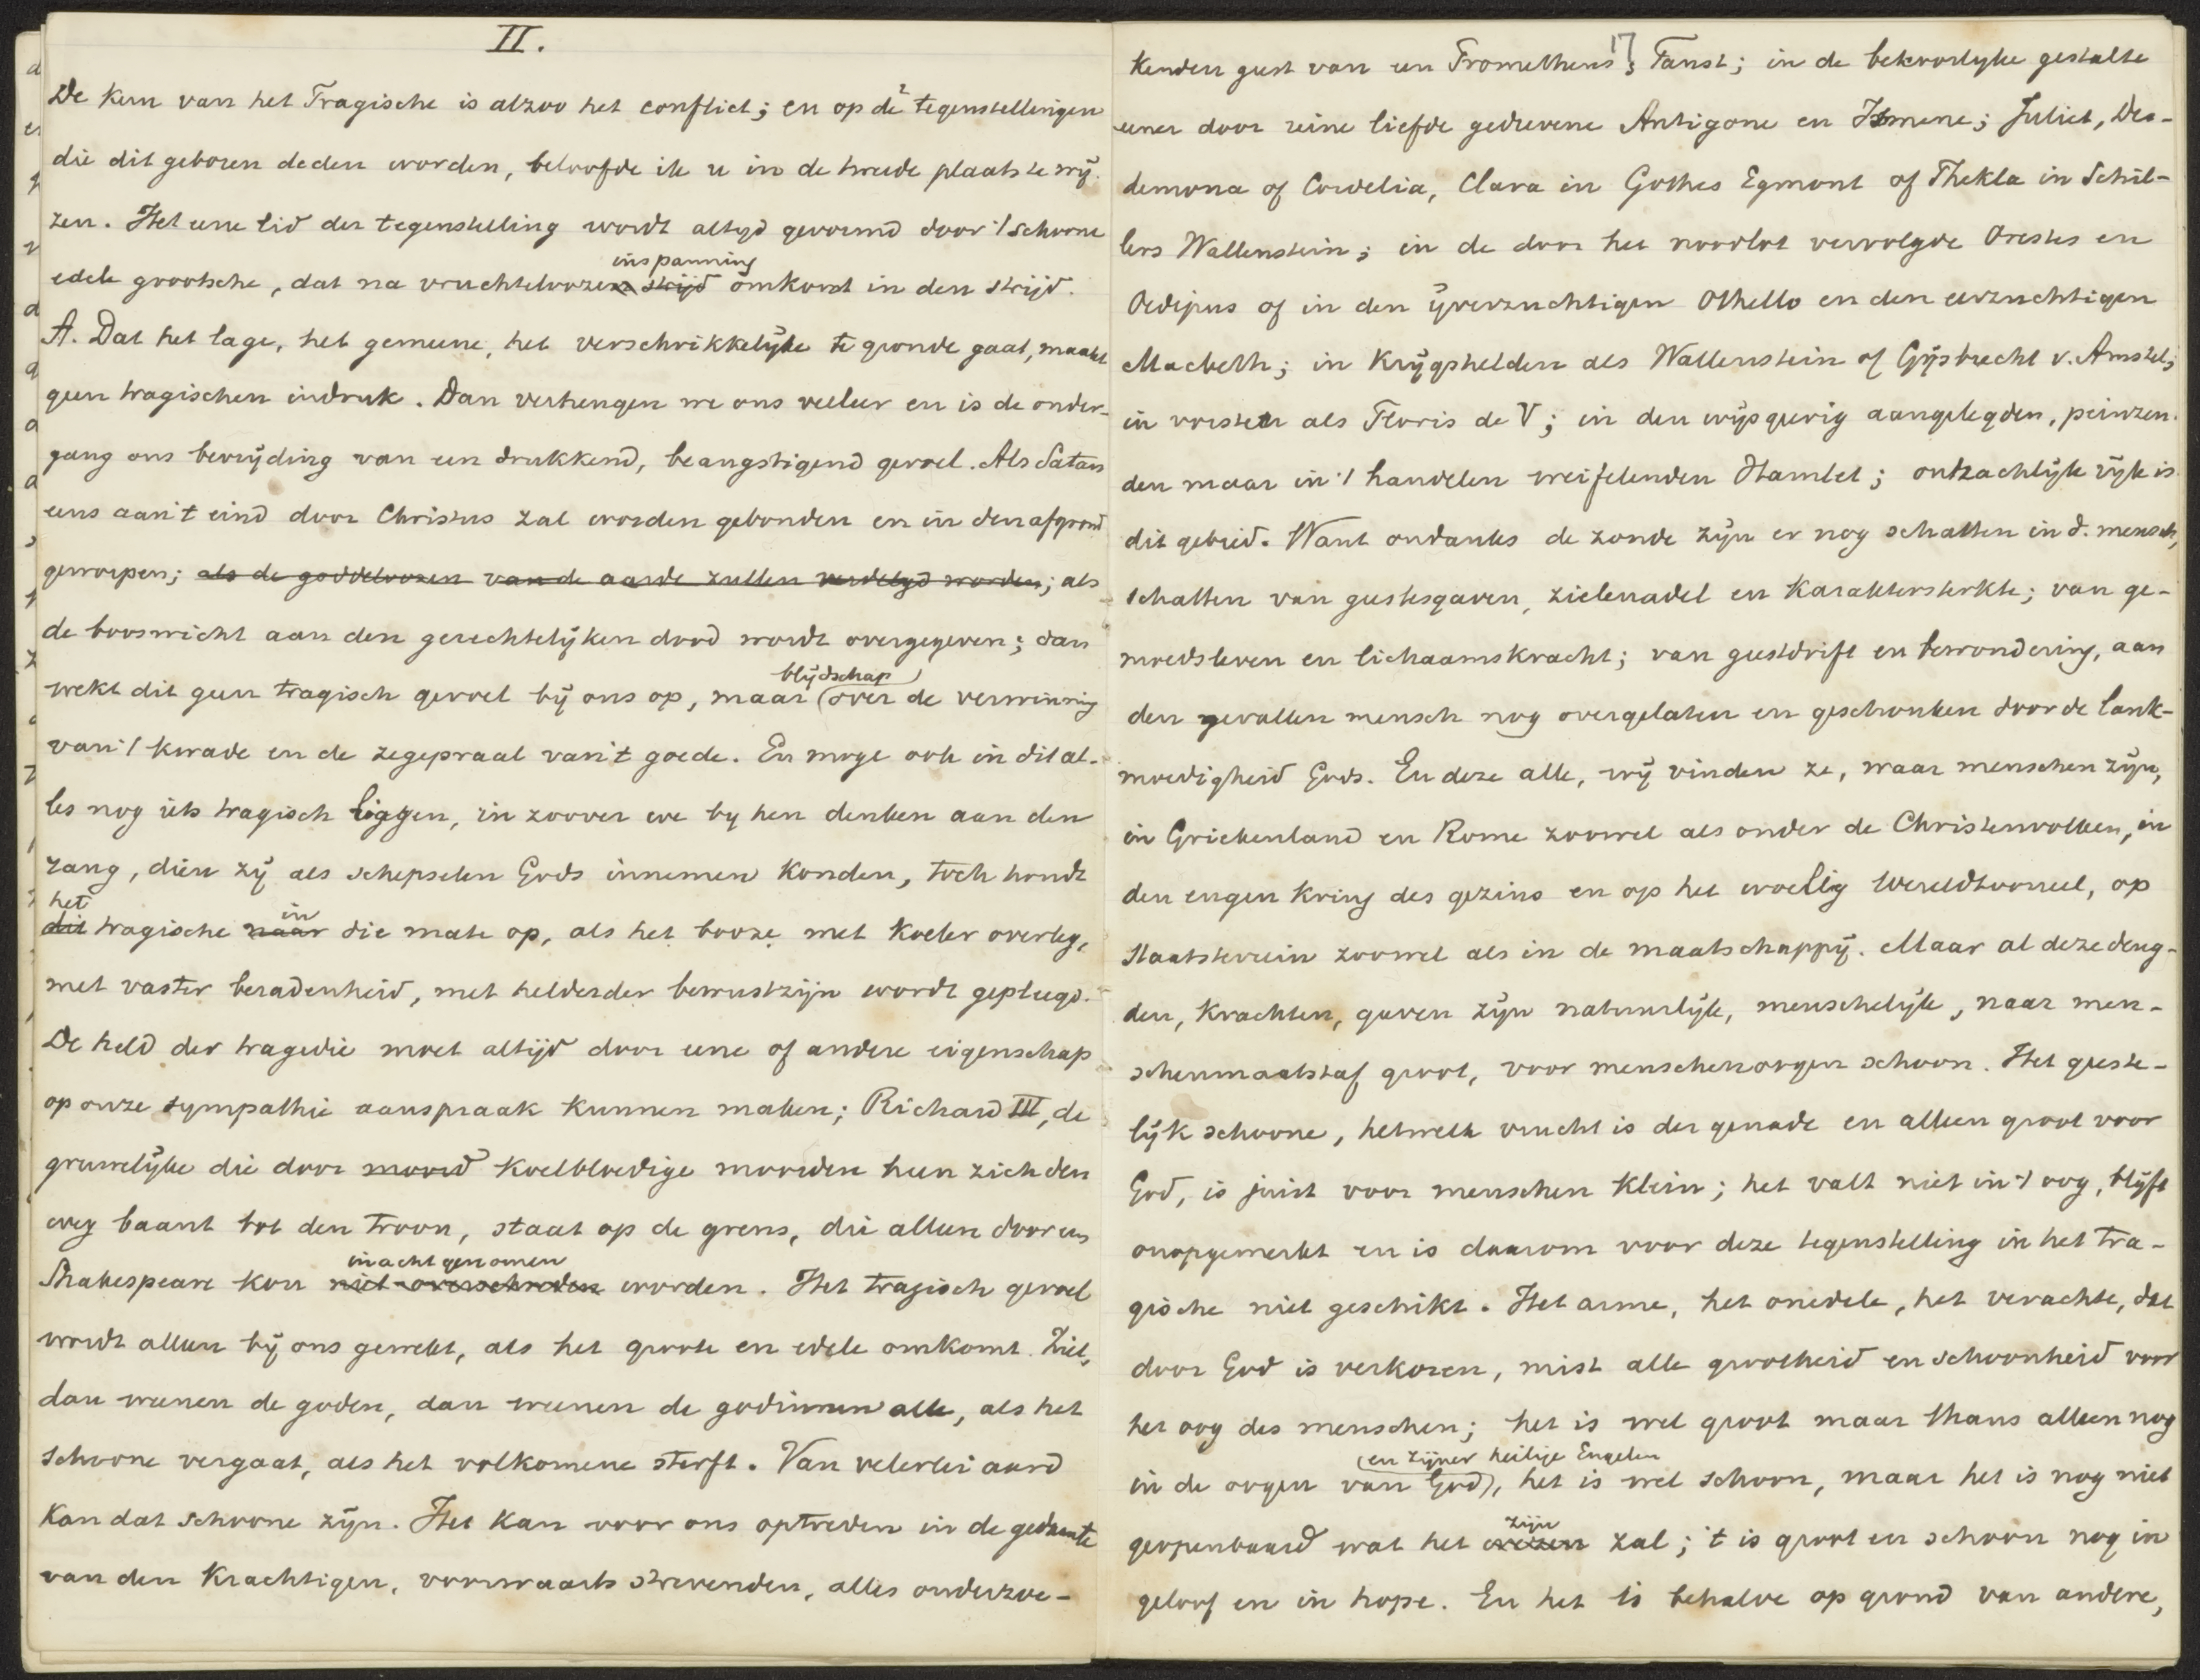 II.
De kern van het Tragische is alzoo het conflict; en op de tegenstellingen
die dit geboren deden worden, beloofde ik u in de tweede plaats te wij-
zen. Het eene lid der tegenstelling wordt altijd gevormd door 't schoone
edele grootsche, dat na vruchteloozen strijd inspanning omkomt in den strijd.
A. Dat het lage, het gemeene, het verschrikkelijke te gronde gaat, maakt
geen tragischen indruk. Dan verheugen we ons veeleer en is de onder-
gang ons bevrijding van een drukkend, beangstigend gevoel. Als Satan
eens aan 't eind door Christus zal worden gebonden en in den afgrond
geworpen; als de goddeloozen van de aarde zullen verdelgd worden; als
de booswicht aan den gerechtelijken dood wordt overgegeven; dan
wekt dit geen tragisch gevoel bij ons op, maar blijdschap over de verwinning
van 't kwade en de zegepraal van 't goede. En moge ook in dit al-
les nog iets tragisch liggen, in zoover we by hen denken aan den
rang, dien zij als schepselen Gods innemen konden, toch houdt
dit het tragische naar in die mate op, als het booze met koeler overleg,
met vaster beradenheid, met helderder bewustzijn wordt gepleegd.
De held der tragedie moet altijd door eene of andere eigenschap
op onze sympathie aanspraak kunnen maken; Richard III, de
gruwelijke die door moord koelbloedige moorden heen zich den
weg baant tot den troon, staat op de grens, die alleen door een
Shakespeare kon niet overschreden in acht genomen worden. Het tragisch gevoel
wordt alleen bij ons gewekt, als het groote en edele omkomt. Ziet,
dan weenen de goden, dan weenen de godinnen alle, als het
schoone vergaat, als het volkomene sterft. Van velerlei aard
kan dat schoone zijn. Het kan voor ons optreden in de gedaante
van den krachtigen, voorwaarts strevenden, alles onderzoe-
17
kenden geest van een Prometheus, Faust; in de bekoorlyke gestalte
eener door reine liefde gedrevene Antigone en Ismene; Juliet, Des-
demona of Cordelia, Clara in Göthes Egmont of Thekla in Schil-
lers Wallenstein; in de door het noodlot vervolgde Orestes en
Oedipus of in den ijverzuchtigen Othello en den eerzuchtigen
Macbeth; in krijgshelden als Wallenstein of Gijsbrecht v. Amstel;
in vorsten als Floris de V; in den wijsgeerig aangelegden, peinzen-
den maar in 't handelen weifelenden Hamlet; ontzachlijk rijk is
dit gebied. Want ondanks de zonde zijn er nog schatten in d. mensch,
schatten van geestesgaven, zielenadel en karaktersterkte; van ge-
moedsleven en lichaamskracht; van geestdrift en bewondering, aan
den gevallen mensch nog overgelaten en geschonken door de lank-
moedigheid Gods. En deze alle, wij vinden ze, waar menschen zijn,
in Griekenland en Rome zoowel als onder de Christenvolken, in
den engen kring des gezins en op het woelig wereldtooneel, op
staatsterrein zoowel als in de maatschappij. Maar al deze deug-
den, krachten, gaven zijn natuurlijk, menschelijk, naar men-
schenmaatstaf groot, voor menschenoogen schoon. Het geeste-
lijk schoone, hetwelk vrucht is der genade en alleen groot voor
God, is juist voor menschen klein; het valt niet in 't oog, blijft
onopgemerkt en is daarom voor deze tegenstelling in het tra-
gische niet geschikt. Het arme, het onedele, het verachte, dat
door God is verkoren, mist alle grootheid en schoonheid voor
het oog des menschen; het is wel groot maar thans alleen nog
in de oogen van God (en zijner heilige Engelen), het is wel schoon, maar het is nog niet
geopenbaard wat het wezen zijn zal; 't is groot en schoon nog in
geloof en in hope. En het is behalve op grond van andere,